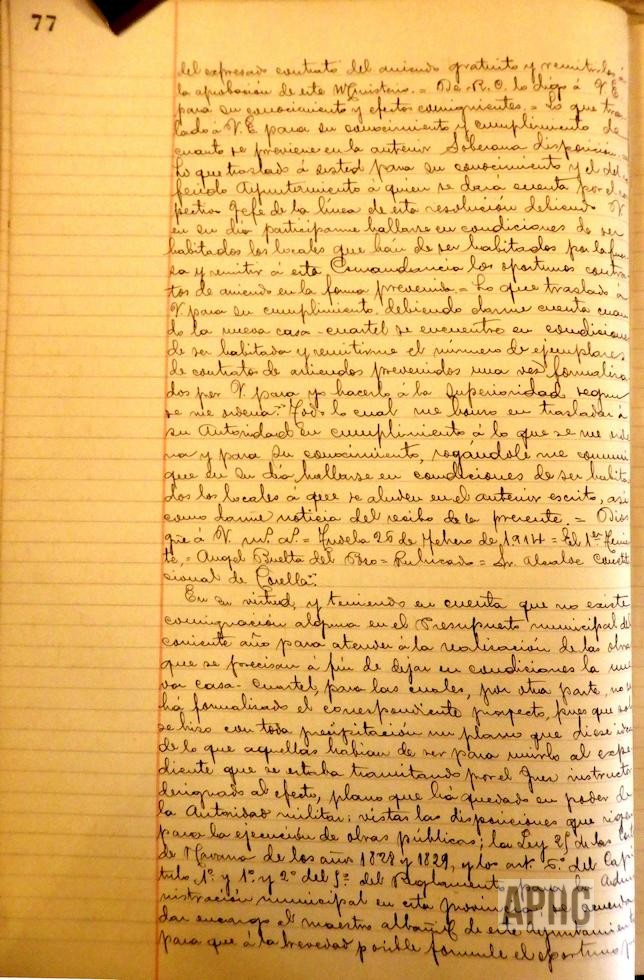 77
del expresado contrato del arriendo gratuito y remitirlos á
la aprobacion de este Ministerio. = De R. O. lo digo á V. E
para su conocimiento y efectos consiguientes. = Lo que tras
lado á V. E. para su conocimiento y cumplimento de
cuanto se previene en la anterior Soberana disposicion. =
Lo que traslado á usted para su conocimiento y el del
ferido Ayuntamiento á quien se dará cuenta por el
pectivo Gefe de la línea de esta resolución debiendo V
en su dia participarme hallarse en condiciones de ser
habitados los locales que han de ser habitados por la fuer
za y remitir á esta Comandancia los oportunos contra
tos de arriendo en la forma prevenida. = Lo que traslado á
V. para su cumplimiento, debiendo darme cuenta cuan
do la nueva casa-cuartel se encuentre en condicione
de ser habitada y remitirme el número de ejemplares
de contratos de arriendos prevenidos una vez formaliza
dos por V. para yo hacerlo á la Superioridad segun
se me ordena. = Todo lo cual me honro en trasladar á
su Autoridad en cumplimiento á lo que se me orde
na y para su conocimiento, rogándole me comuni
que en su dia hallarse en condiciones de ser habita
dos los locales á que se aluden en el anterior escrito, asi
como darme noticia del recibo de la presente. = Dios
gue á V. ms. as. = Tudela 26 de Febrero de 1914 = El 1er Tenien
te, = Angel Buelta del Pozo = Rubricado = Sr. Alcalde Consti
cional de Corella".
En su virtud, y teniendo en cuenta que no existe
consignación alguna en el Presupuesto municipal del
corriente año para atender á la realización de las obras
que se precisan á fin de dejar en condiciones la nue
va casa-cuartel, para las cuales, por otra parte, no se
há formalizado el correspondiente proyecto, pues que solo
se hizo con toda precipitación un plano que diese idea
de lo que aquellas habian de ser para unirlo al expe
diente que se estaba tramitando por el Juez instructor
designado al efecto, plano que há quedado en poder de
la Autoridad militar: vistas las disposiciones que rigen
para la ejecución de obras públicas; la Ley 25 de las Cortes
de Navarra de los años 1828 y 1829, y los art. 5.º del Capi
tulo 1º y 1º y 2º del 5º del Reglamento para la Admi
nistración municipal en esta provincia se acuerda
dar encargo el maestro albañil de este Ayuntamiento
para que á la brevedad posible formule el oportuno p
APHC